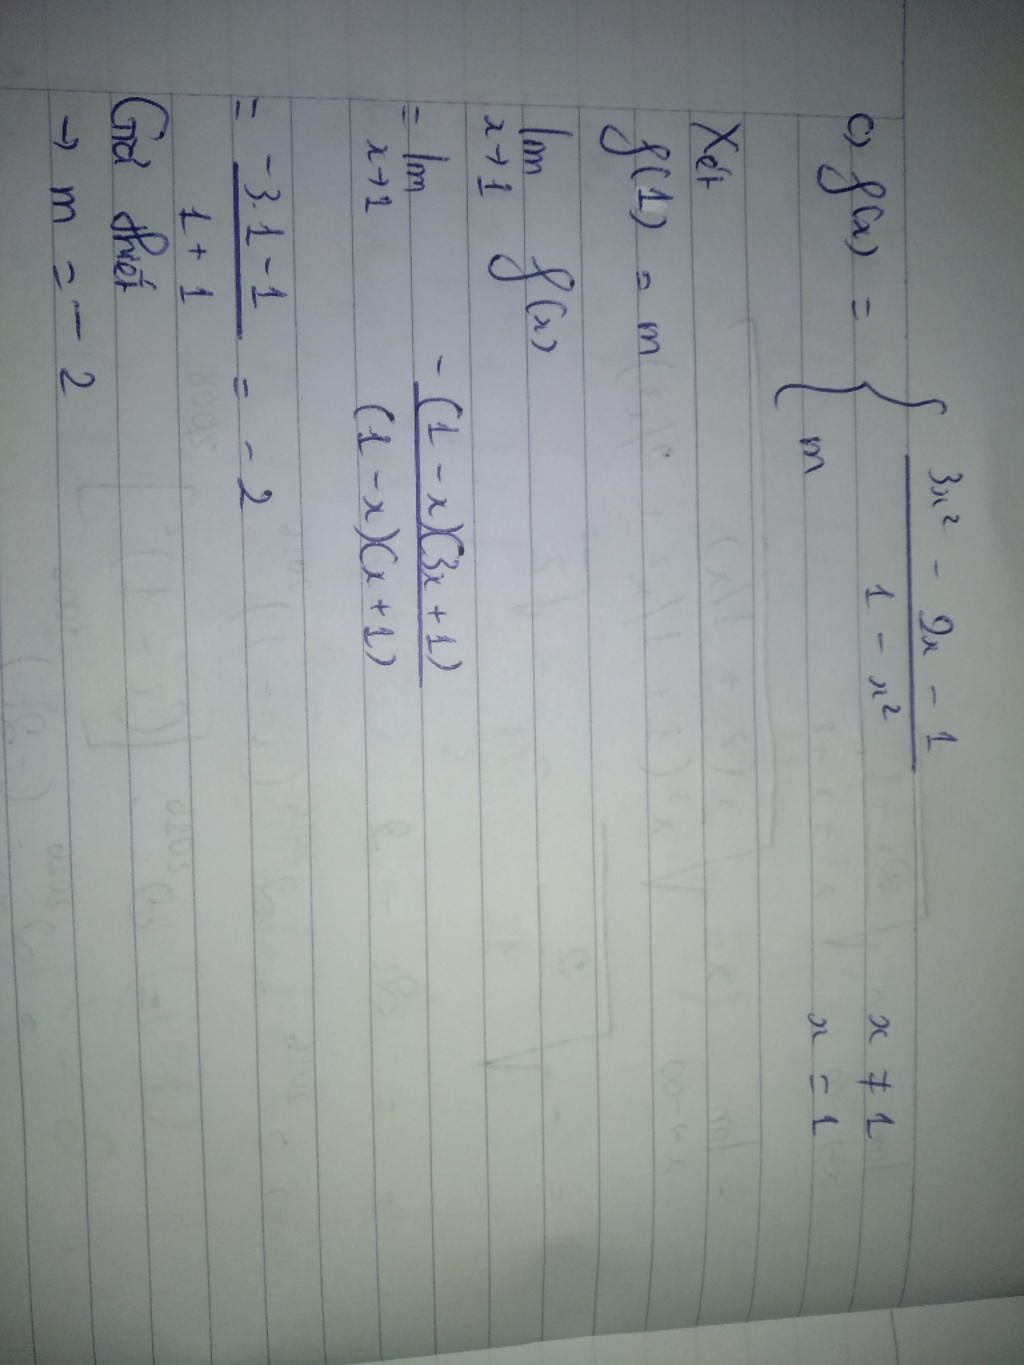 c) f(x) = { (3x² - 2x - 1)/(1 - x²) x ≠ 1
{ m x = 1
Xét
f(1) = m
lim x→1 f(x)
= lim x→1 -(1 - x)(3x + 1)/(1 - x)(x + 1)
= (-3.1 - 1)/(1 + 1) = -2
Giả thiết
→ m = -2